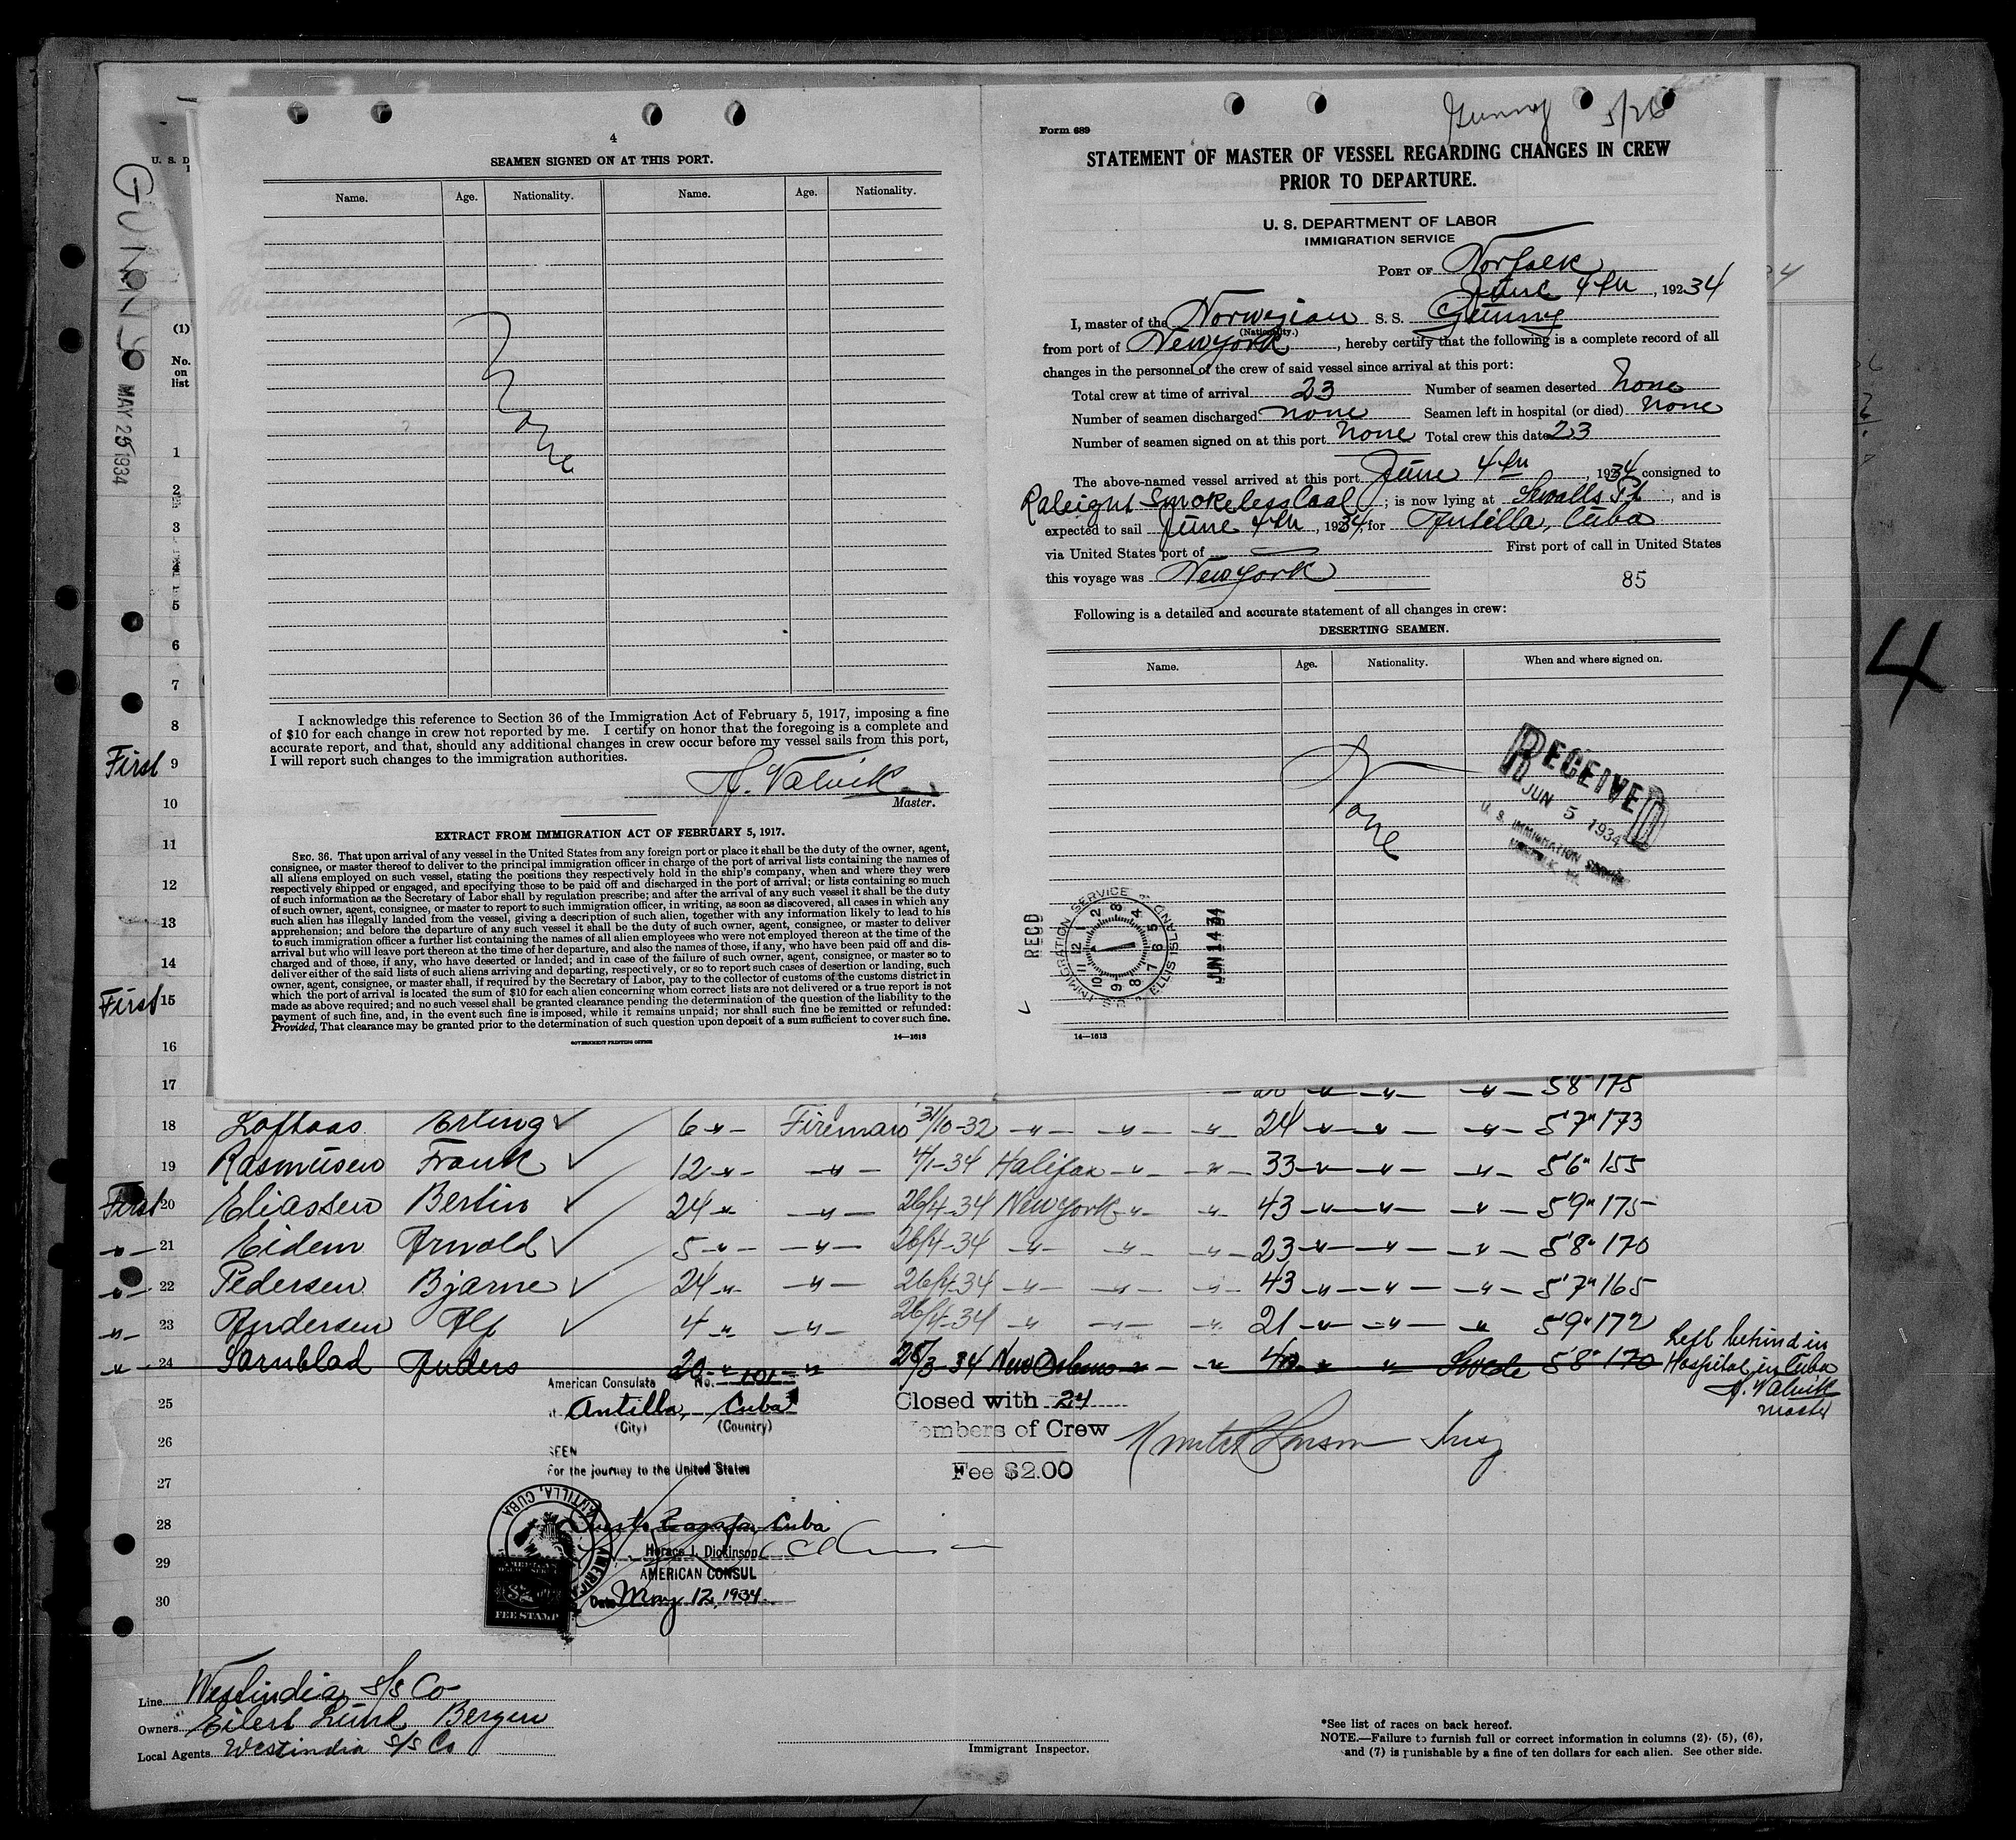 4
SEAMEN SIGNED ON AT THIS PORT.
Name. Age. Nationality. Name. Age. Nationality.
None
I acknowledge this reference to Section 36 of the Immigration Act of February 5, 1917, imposing a fine
of $10 for each change in crew not reported by me. I certify on honor that the foregoing is a complete and
accurate report, and that, should any additional changes in crew occur before my vessel sails from this port,
I will report such changes to the immigration authorities.
A. Valvik
Master.
EXTRACT FROM IMMIGRATION ACT OF FEBRUARY 5, 1917.
SEC. 36. That upon arrival of any vessel in the United States from any foreign port or place it shall be the duty of the owner, agent,
consignee, or master thereof to deliver to the principal immigration officer in charge of the port of arrival lists containing the names of
all aliens employed on such vessel, stating the positions they respectively hold in the ship's company, when and where they were
respectively shipped or engaged, and specifying those to be paid off and discharged in the port of arrival; or lists containing so much
of such information as the Secretary of Labor shall by regulation prescribe; and after the arrival of any such vessel it shall be the duty
of such owner, agent, consignee, or master to report to such immigration officer, in writing, as soon as discovered, all cases in which any
such alien has illegally landed from the vessel, giving a description of such alien, together with any information likely to lead to his
apprehension; and before the departure of any such vessel it shall be the duty of such owner, agent, consignee, or master to deliver
to such immigration officer a further list containing the names of all alien employees who were not employed thereon at the time of the
arrival but who will leave port thereon at the time of her departure, and also the names of those, if any, who have been paid off and dis-
charged and of those, if any, who have deserted or landed; and in case of the failure of such owner, agent, consignee, or master so to
deliver either of the said lists of such aliens arriving and departing, respectively, or so to report such cases of desertion or landing, such
owner, agent, consignee, or master shall, if required by the Secretary of Labor, pay to the collector of customs of the customs district in
which the port of arrival is located the sum of $10 for each alien concerning whom correct lists are not delivered or a true report is not
made as above required; and no such vessel shall be granted clearance pending the determination of the question of the liability to the
payment of such fine, and, in the event such fine is imposed, while it remains unpaid; nor shall such fine be remitted or refunded:
Provided, That clearance may be granted prior to the determination of such question upon deposit of a sum sufficient to cover such fine.
GOVERNMENT PRINTING OFFICE 14—1613
Gunny 5/26
Form 689
STATEMENT OF MASTER OF VESSEL REGARDING CHANGES IN CREW
PRIOR TO DEPARTURE.
U. S. DEPARTMENT OF LABOR
IMMIGRATION SERVICE
PORT OF Norfolk
June 4th, 192 34
I, master of the Norwegian S. S. Gunny
(Nationality.)
from port of New york, hereby certify that the following is a complete record of all
changes in the personnel of the crew of said vessel since arrival at this port:
Total crew at time of arrival 23 Number of seamen deserted None
Number of seamen discharged none Seamen left in hospital (or died) None
Number of seamen signed on at this port None Total crew this date 23
The above-named vessel arrived at this port June 4th, 1934 consigned to
Raleight Smokeless Coal; is now lying at Sewalls Pt, and is
expected to sail June 4th, 1934, for Antilla, Cuba
via United States port of First port of call in United States
this voyage was New york
85
Following is a detailed and accurate statement of all changes in crew:
DESERTING SEAMEN.
Name. Age. Nationality. When and where signed on.
None
RECEIVED
JUN 5 1934
U. S. IMMIGRATION SERVICE
NORFOLK, VA.
RECD
IMMIGRATION SERVICE ELLIS ISLAND
JUN 14 34
14—1613
4
U. S. D
GUNNY
MAY 25 1934
(1)
No.
on
list
1
2
3
4
5
6
7
8
First 9
10
11
12
13
14
First 15
16
17 5'8" 175
18 Loftaas Erling 6 " Fireman 31/10-32 " " " 24 " " " 5'7" 173
19 Rasmussen Frank 12 " " 4/1-34 Halifax " " 33 " " " 5'6" 155
First 20 Eliassen Bertin 24 " " 26/4-34 New york " " 43 " " " 5'9" 175
" 21 Eidem Arnold 5 " " 26/4-34 " " " 23 " " " 5'8" 170
" 22 Pedersen Bjarne 24 " " 26/4-34 " " " 43 " " " 5'7" 165
" 23 Andersen Alf 4 " " 26/4-34 " " " 21 " " " 5'9" 172
" 24 Sarnblad Anders 20 " " 28/3-34 New Orleans " " 40 " " Swede 5'8" 170
Left behind in
Hospital in Cuba
A. Valvik
master
25
26
27
28
29
30
American Consulate No. 101
Antilla, Cuba
(City) (Country)
SEEN
For the journey to the United States
Cuba
Horace J. Dickinson
AMERICAN CONSUL
Date May 12, 1934.
ANTILLA, CUBA
FEE STAMP
Closed with 24
Members of Crew
Fee $2.00
Line Westindia S/S Co
Owners Eilert Lund, Bergen
Local Agents Westindia S/S Co
Immigrant Inspector.
*See list of races on back hereof.
NOTE.—Failure to furnish full or correct information in columns (2), (5), (6),
and (7) is punishable by a fine of ten dollars for each alien. See other side.